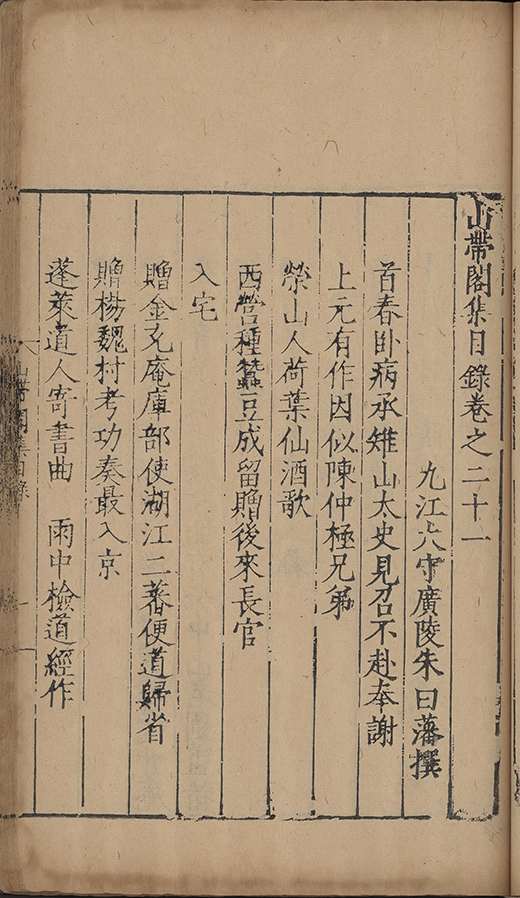 山帶閣集目錄卷之二十一
九江大守廣陵朱曰藩撰
首春卧病承雉山太史見召不赴奉謝
上元有作因似陳仲極兄弟
榮山人荷葉仙酒歌
西營種蠶豆成留贈後來長官
入宅
贈金玄庵庫部使湖江二藩便道歸省
贈楊魏村考功奏最入京
蓬萊道人寄書曲　雨中檢道經作
山帶閣集目錄